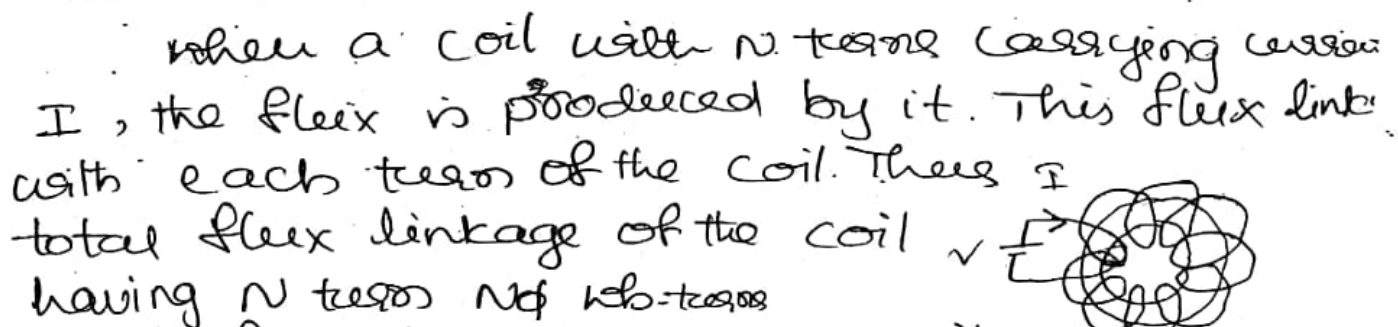 when a coil with N turns carrying curren
I, the flux is produced by it. This flux link
with each turn of the coil. Thus I
total flux linkage of the coil V
having N turns Nϕ wb-turns